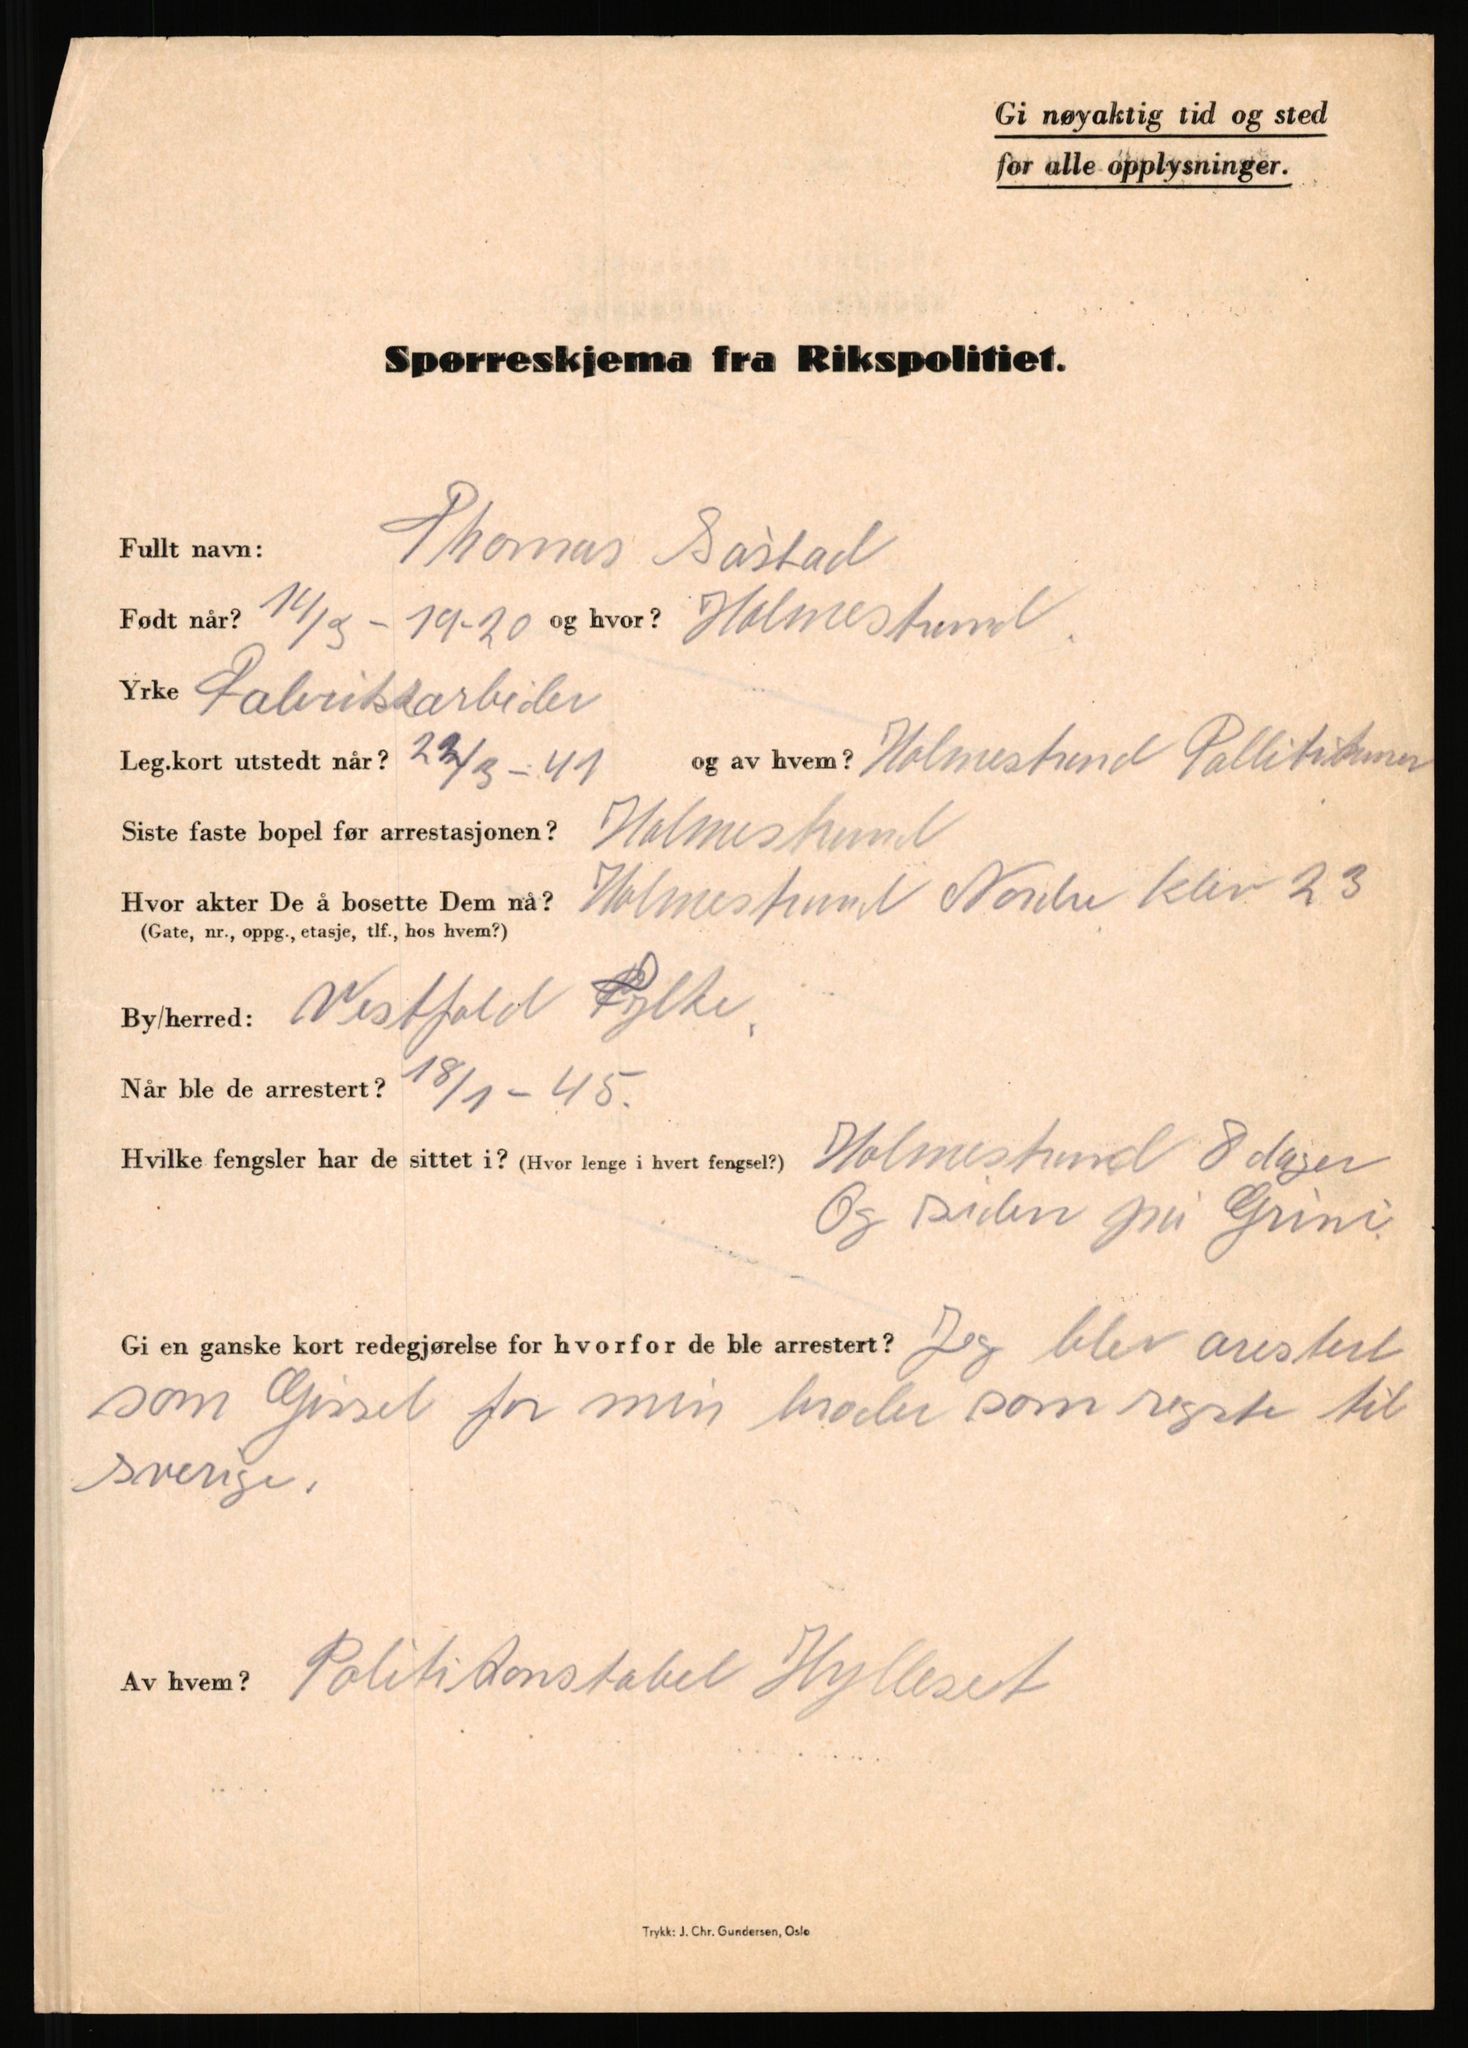 Gi nøyaktig tid og sted
for alle opplysninger.
Spørreskjema fra Rikspolitiet.
Fullt navn: Thomas Såstad
Født når? 14/3 - 19-20 og hvor? Holmestrand.
Yrke Fabrikkarbeider
Leg.kort utstedt når? 22/3 - 41 og av hvem? Holmestrand
Siste faste bopel før arrestasjonen? Holmestrand
Hvor akter De å bosette Dem nå? Holmestrand Nordre kleiv 23
(Gate, nr., oppg., etasje, tlf., hos hvem?)
By/herred: Vestfold Fylke.
Når ble de arrestert? 18/1 - 45.
Hvilke fengsler har de sittet i? (Hvor lenge i hvert fengsel?) Holmestrand 8 dager
Og siden på Grini.
Gi en ganske kort redegjørelse for hvorfor de ble arrestert? Jeg blev arestert
som Gissel for min broder som rejste til
sverige.
Av hvem? Politikonstabel Hylleset
Trykk: J. Chr. Gundersen, Oslo